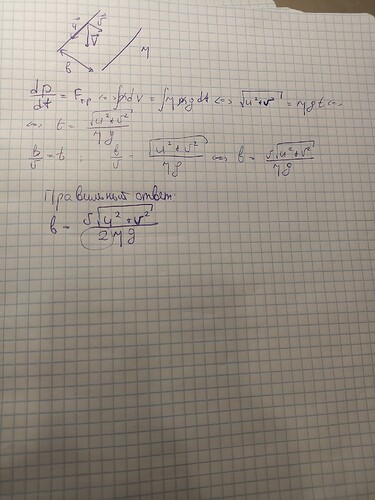 u v
V
b μ
dp/dt = Fтр ⇔ ∫mdv = ∫μmgdt ⇔ √(u²+v²) = μgt ⇔
⇔ t = √(u²+v²)/μg
b/v = t ; b/v = √(u²+v²)/μg ⇔ b = v√(u²+v²)/μg
Правильный ответ:
b = v√(u²+v²)/2μg